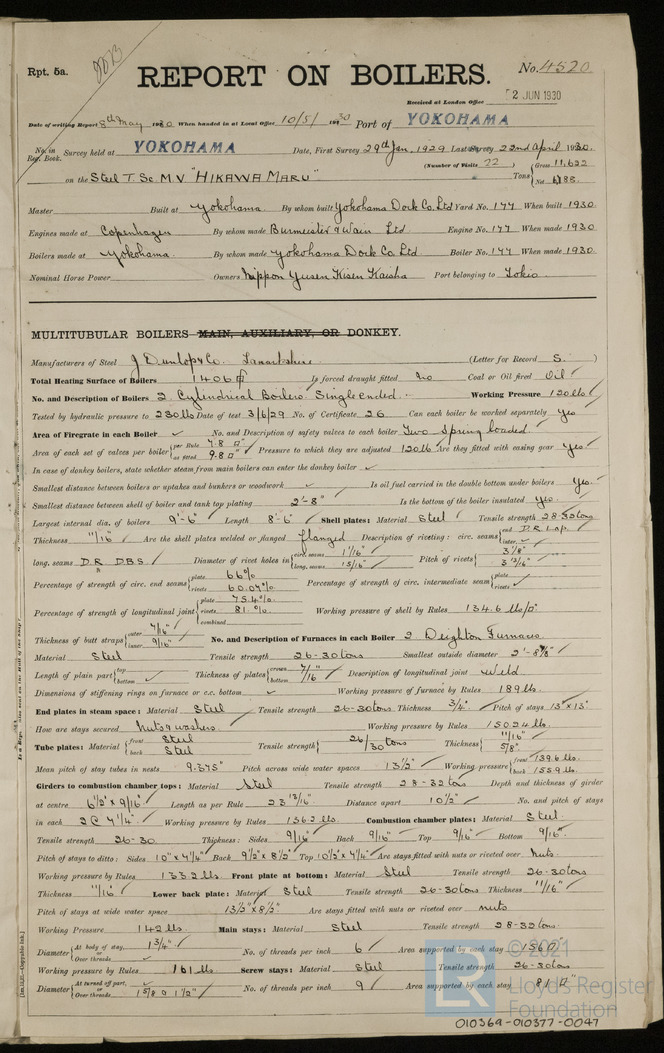 Rpt. 5a.
REPORT ON BOILERS.
No. 4520
Received at London Office 2 JUN 1930
Date of writing Report 8th May 1930 When handed in at Local Office 10/5/1930 Port of YOKOHAMA
No. in Reg. Book. Survey held at YOKOHAMA Date, First Survey 29th Jan, 1929 Last Survey 22nd April 1930.
(Number of Visits 22 ) Gross 11,622
on the Steel T. Sc. M.V "HIKAWA MARU" Tons Net 6185.
Master Built at Yokohama. By whom built Yokohama Dock Co. Ltd Yard No. 177 When built 1930
Engines made at Copenhagen By whom made Burmeister & Wain Ltd Engine No. 177 When made 1930
Boilers made at Yokohama. By whom made Yokohama Dock Co Ltd Boiler No. 177 When made 1930
Nominal Horse Power Owners Nippon Yusen Kisen Kaisha Port belonging to Tokio
MULTITUBULAR BOILERS MAIN, AUXILIARY, OR DONKEY.
Manufacturers of Steel J Dunlop & Co. Lanarkshire (Letter for Record S. )
Total Heating Surface of Boilers 1406 Is forced draught fitted No Coal or Oil fired Oil
No. and Description of Boilers 2. Cylindrical Boilers Single ended. Working Pressure 120 lbs
Tested by hydraulic pressure to 230 lbs Date of test 3/6/29 No. of Certificate 26 Can each boiler be worked separately yes
Area of Firegrate in each Boiler ✓ No. and Description of safety valves to each boiler Two spring loaded
Area of each set of valves per boiler per Rule 7.8 □" as fitted 9.8 □" Pressure to which they are adjusted 120 lb Are they fitted with easing gear yes
In case of donkey boilers, state whether steam from main boilers can enter the donkey boiler ✓
Smallest distance between boilers or uptakes and bunkers or woodwork ✓ Is oil fuel carried in the double bottom under boilers Yes.
Smallest distance between shell of boiler and tank top plating 2'-8" Is the bottom of the boiler insulated Yes.
Largest internal dia. of boilers 9'-6" Length 8'-6" Shell plates: Material Steel Tensile strength 28-32 tons
Thickness 11/16" Are the shell plates welded or flanged flanged Description of riveting: circ. seams end D.R Lap inter. ✓
long. seams D.R DBS Diameter of rivet holes in circ. seams 1 1/16" long. seams 15/16" Pitch of rivets 3 1/8" 3 13/16"
Percentage of strength of circ. end seams plate 66% rivets 60.07% Percentage of strength of circ. intermediate seam plate rivets ✓
Percentage of strength of longitudinal joint plate 75.4% rivets 81.% combined Working pressure of shell by Rules 134.6 lbs/□"
Thickness of butt straps outer 7/16" inner 9/16" No. and Description of Furnaces in each Boiler 2 Deighton Furnaces
Material Steel Tensile strength 26-30 tons Smallest outside diameter 2'-8 5/8"
Length of plain part top bottom ✓ Thickness of plates crown bottom 7/16" Description of longitudinal joint Weld
Dimensions of stiffening rings on furnace or c.c. bottom ✓ Working pressure of furnace by Rules 189 lbs
End plates in steam space: Material Steel Tensile strength 26-30 tons. Thickness 3/4" Pitch of stays 13" x 13"
How are stays secured Nuts & washers Working pressure by Rules 150.24 lbs.
Tube plates: Material front Steel back Steel Tensile strength 26/30 tons Thickness 11/16" 5/8"
Mean pitch of stay tubes in nests 9.375" Pitch across wide water spaces 13 1/2" Working pressure front 139.6 lbs. back 155.9 lbs.
Girders to combustion chamber tops: Material Steel Tensile strength 28-32 tons Depth and thickness of girder
at centre 6 1/2" x 9/16" Length as per Rule 23 13/16" Distance apart 10 1/2" No. and pitch of stays
in each 2 @ 7 1/4" Working pressure by Rules 136.2 lbs. Combustion chamber plates: Material Steel.
Tensile strength 26-30 Thickness: Sides 9/16" Back 9/16" Top 9/16" Bottom 9/16"
Pitch of stays to ditto: Sides 10" x 7 1/4" Back 9 1/2" x 8 1/2" Top 10 1/2" x 7 1/4" Are stays fitted with nuts or riveted over Nuts.
Working pressure by Rules 133.2 lbs. Front plate at bottom: Material Steel Tensile strength 26-30 tons
Thickness 11/16" Lower back plate: Material Steel Tensile strength 26-30 tons Thickness 11/16"
Pitch of stays at wide water space 13 1/2" x 8 1/2" Are stays fitted with nuts or riveted over nuts
Working Pressure 142 lbs. Main stays: Material Steel Tensile strength 28-32 tons
Diameter At body of stay, or Over threads 1 3/4" No. of threads per inch 6 Area supported by each stay 156 □"
Working pressure by Rules 161 lbs Screw stays: Material Steel Tensile strength 26-30 tons
Diameter At turned off part, or Over threads 1 5/8 & 1 1/2" No. of threads per inch 9 Area supported by each stay 81 □"
© 2021
LR
Lloyd's Register
Foundation
010369-010377-0047